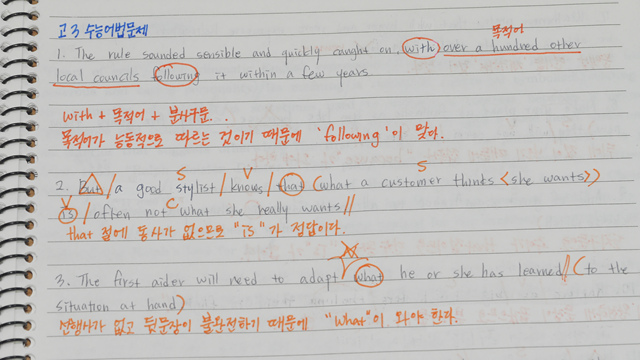 고3 수능어법문제
목적어
1. The rule sounded sensible and quickly caught on, with over a hundred other
local councils following it within a few years
with + 목적어 + 분사구문. .
목적어가 능동적으로 따르는 것이기 때문에 'following'이 맞다.
S V S
2. But / a good stylist / knows / that (what a customer thinks <she wants>)
V C
is / often not what she really wants //
that 절에 동사가 없으므로 "is"가 정답이다.
3. The first aider will need to adapt what he or she has learned // (to the
situation at hand)
선행사가 없고 뒷문장이 불완전하기 때문에 "what"이 와야 한다.